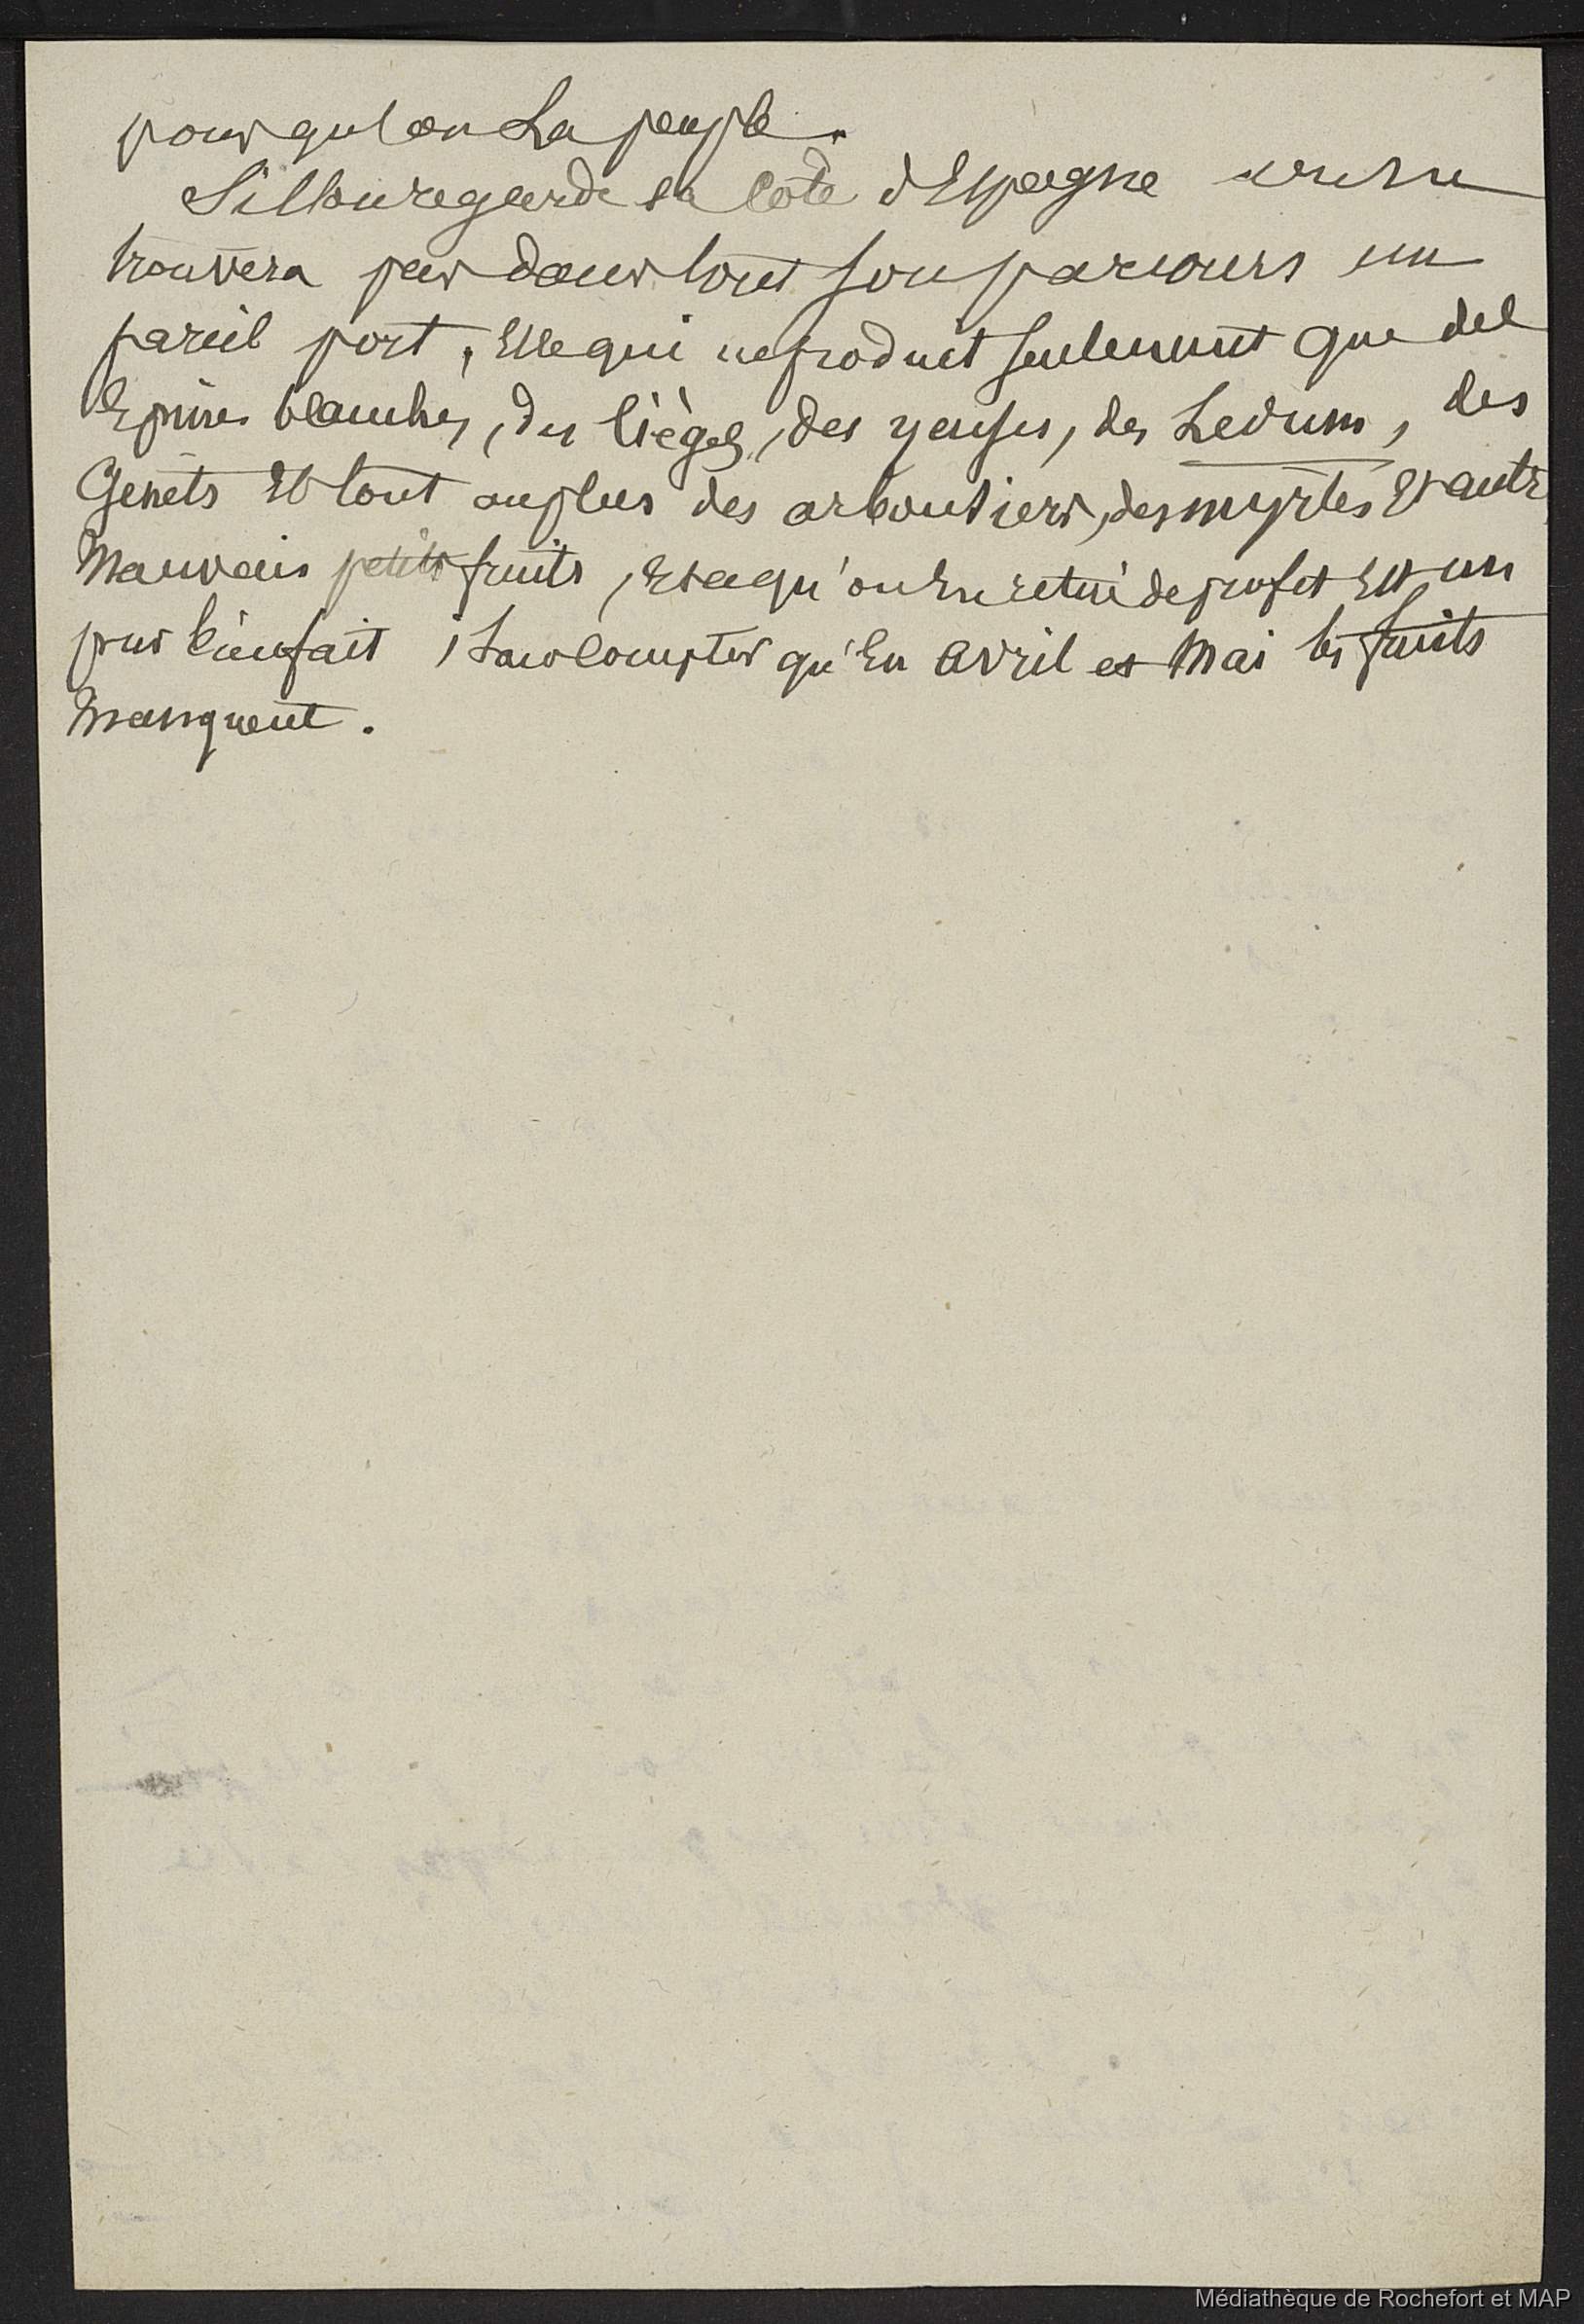 pour qu'on la peuple.
Si l'on regarde la Côte d'Espagne on ne
trouvera pas dans tout son parcours un
pareil port, Elle qui ne produit seulement que des
Epines blanches, des lièges, des yeuses, des Ledum, des
Genêts Et tout au plus des arboutiers, des myrtes Et autr
Mauvais petits fruits, Et ce qu'on En retire de profit Est un
pur bienfait, Sans Compter qu'En Avril et Mai les fruits
Manquent.
Médiathèque de Rochefort et MAP